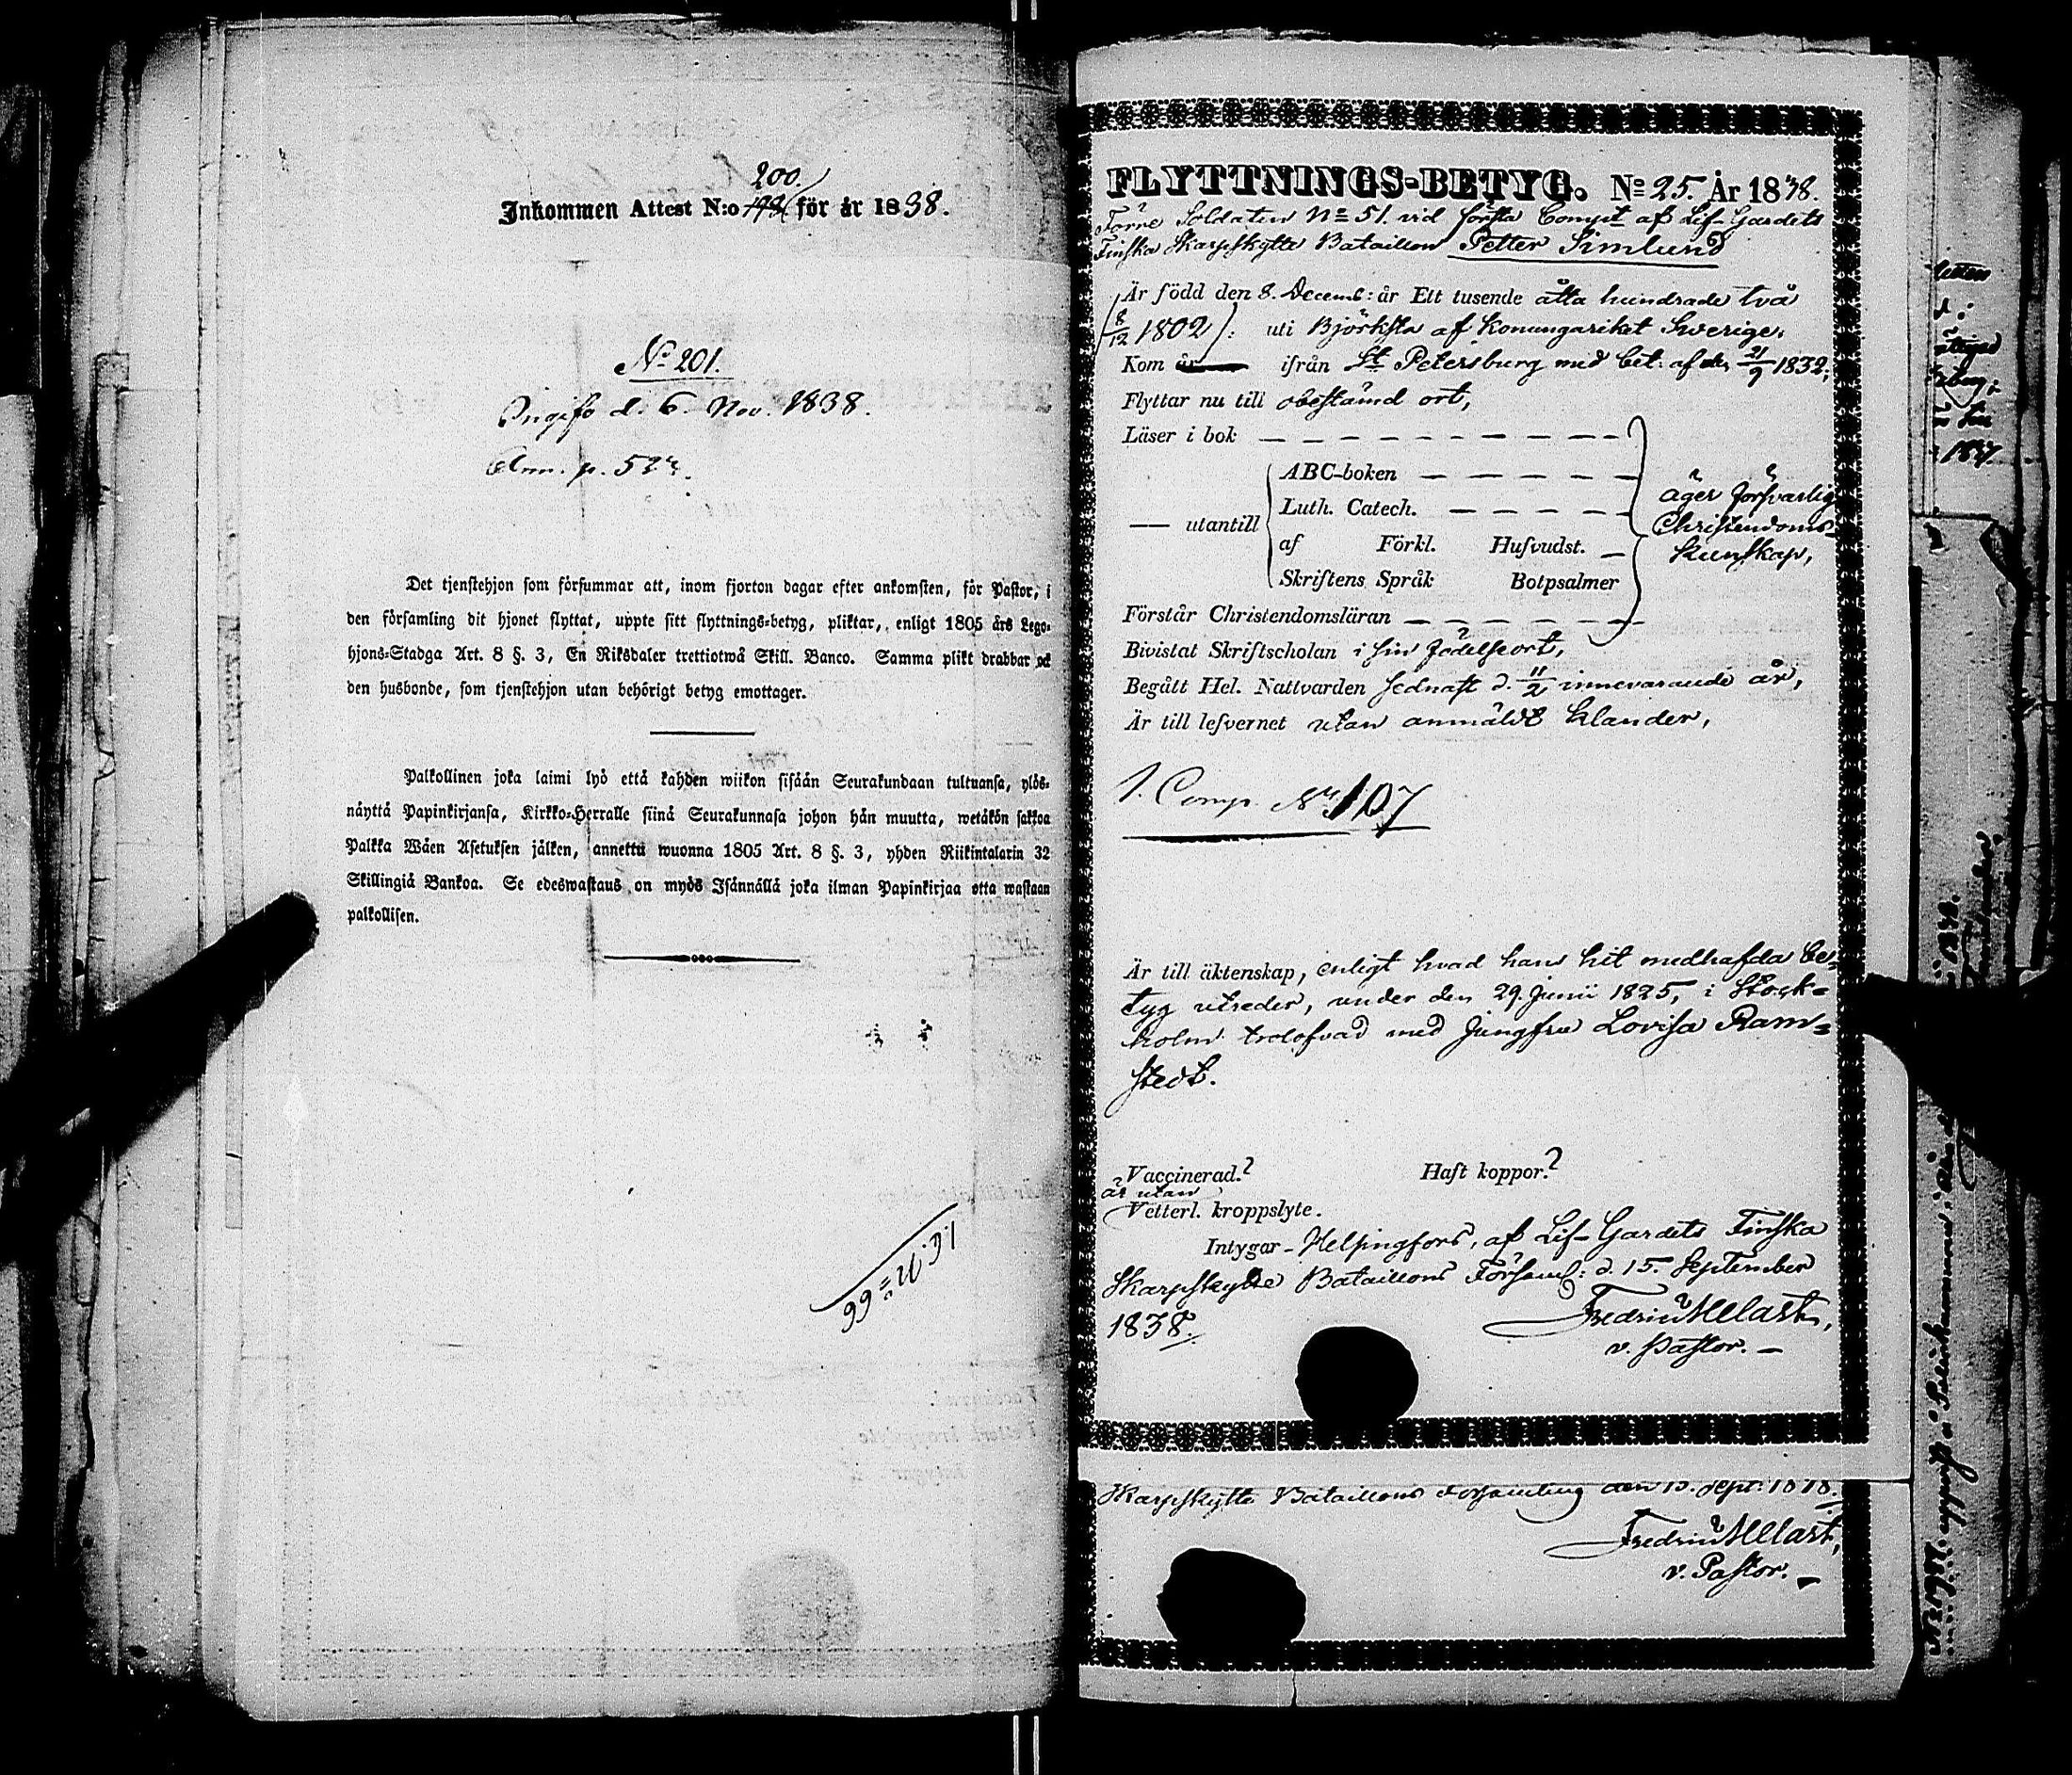 200.
Inkommen Attest N:o 192 för år 1838.
No 201.
Ingifv. d. 6. Nov. 1838.
Ann. p. 527.
Det tjenstehjon som försummar att, inom fjorton dagar efter ankomsten, för Pastor, i
den församling dit hjonet flyttat, uppte sitt flyttnings-betyg, pliktar, enligt 1805 års Lego-
hjons-Stadga Art. 8 §. 3, En Riksdaler trettiotwå Skill. Banco. Samma plikt drabbar ock
den husbonde, som tjenstehjon utan behörigt betyg emottager.
Palkollinen joka laimi lyö että kahden wiikon sisään Seurakundaan tultuansa, ylös-
näyttä Papinkirjansa, Kirkko-Herralle siinä Seurakunnasa johon hän muutta, wetäkön sakkoa
Palkka Wäen Asetuksen jälken, annettu wuonna 1805 Art. 8 §. 3, yhden Riikintalarin 32
Skillingiä Bankoa. Se edeswastaus on myös Isännällä joka ilman Papinkirjaa otta wastaan
palkollisen.
FLYTTNINGS-BETYG. No 25. År 1838.
Förre Soldaten No 51. vid första Compt af Lif-Gardets
Finska Skarpskytte Bataillon Petter Simlund
Är född den 8. Decemb: år Ett tusende åtta hundrade två
(8/12 1802): uti Björksta af Konungariket Sverige.
Kom år ifrån St Petersburg med bet: af den 21/9 1832,
Flyttar nu till obestämd ort,
Läser i bok
ABC-boken
Luth. Catech.
— utantill
af Förkl. Hufvudst.
Skriftens Språk Botpsalmer
äger försvarlig
Christendoms-
kunskap,
Förstår Christendomsläran
Bivistat Skriftscholan i sin födelseort,
Begått Hel. Nattvarden sednast d. 11/2 innevarande år,
Är till lefvernet utan anmäldt klander,
1. Comp. No 107
Är till äktenskap, enligt hvad hans hit medhafda be-
tyg utreder, under den 29. Junii 1825, i Stock-
holm trolofvad med Jungfru Lovisa Ram-
stedt.
Vaccinerad.? Haft koppor.?
är utan
Vetterl. kroppslyte.
Intygar - Helsingfors, af Lif-Gardets Finska
Skarpskytte Bataillons Församl: d. 15. September
1838.
Fredric Melart,
v. Pastor.
Skarpskytte Bataillons Församling den 15. Sept: 1838.
Fredric Melart,
v. Pastor.